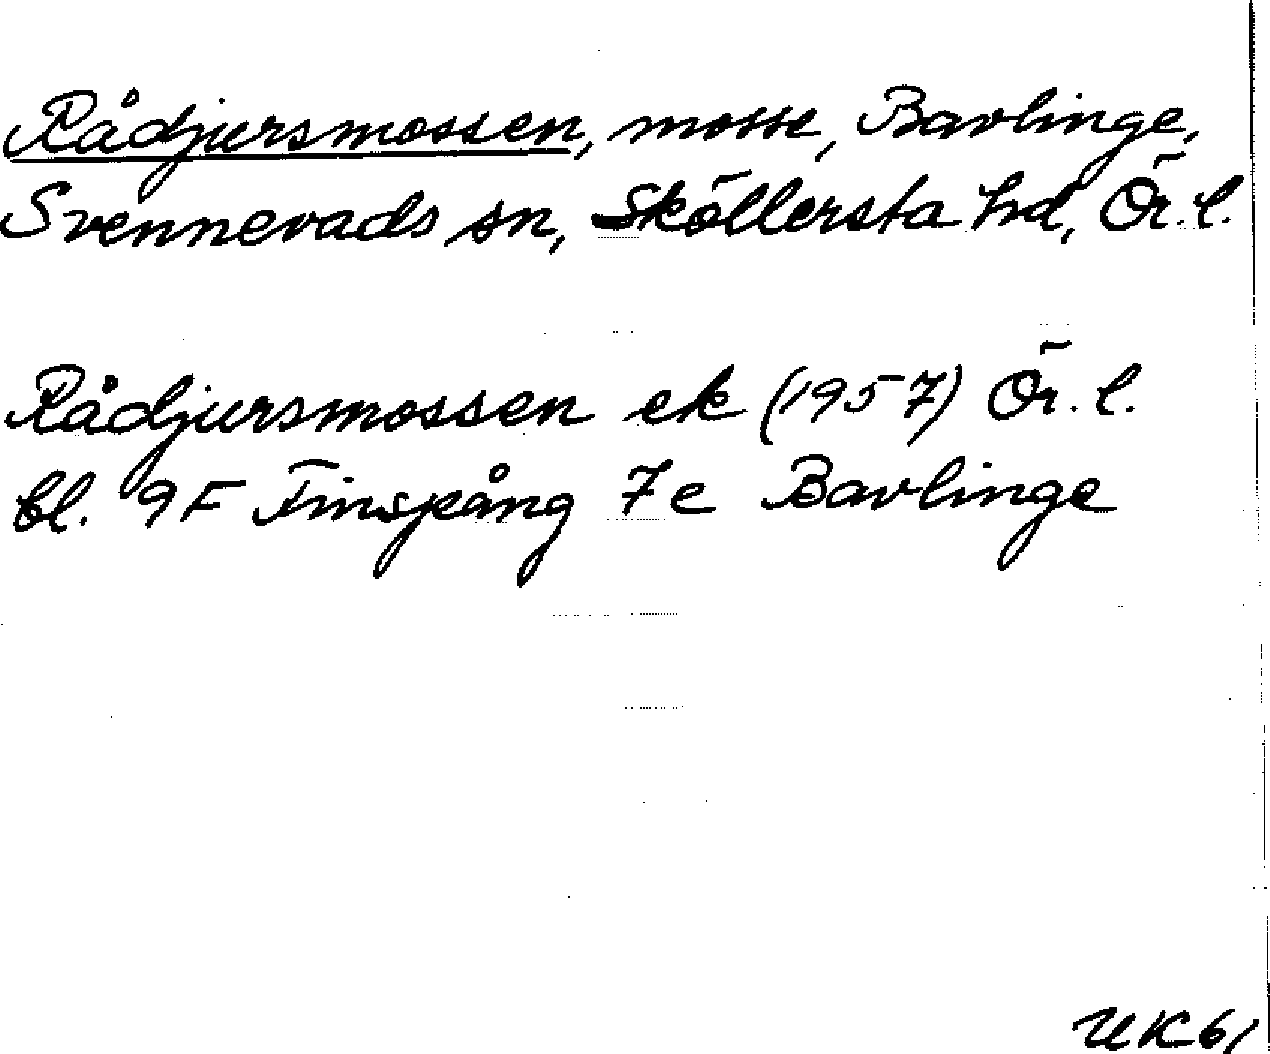 Rådjursmossen, mosse, Bavlinge,
Svennevads sn, Sköllersta hd, Ör. l.
Rådjursmossen ek (1957) Ör. l.
bl. 9F Finspång 7e Bavlinge
UK61